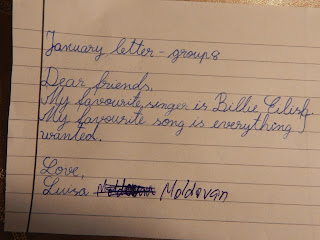 January letter - group 8
Dear friends,
My favourite singer is Billie Eilish.
My favourite song is everything I
wanted.
Love,
Luisa Moldovan